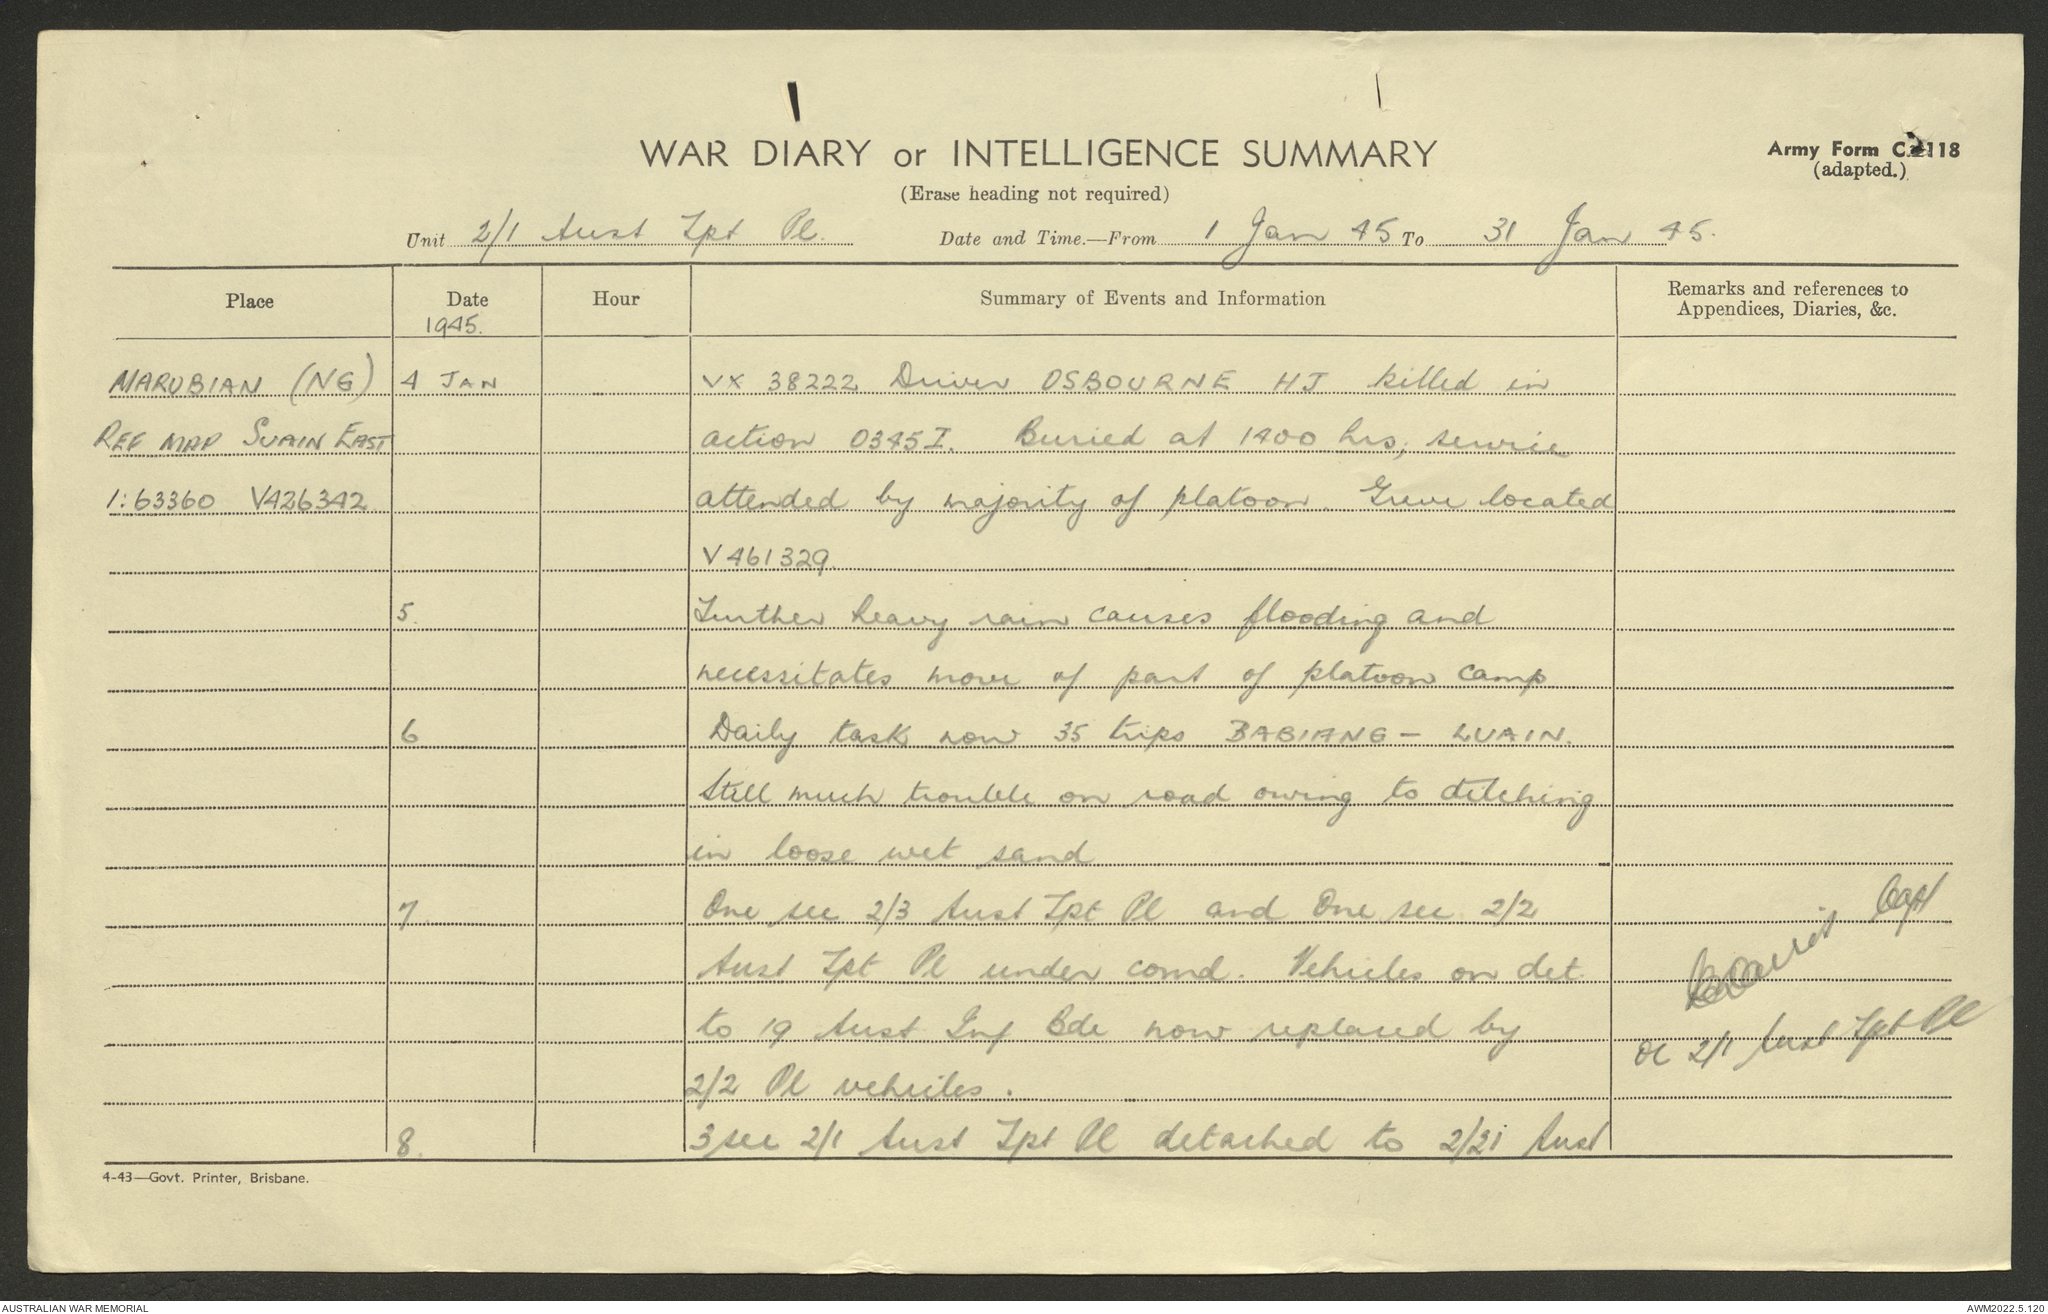 WAR DIARY or INTELLIGENCE SUMMARY
(Erase heading not required)
Army Form C.2118
(adapted.)
Unit 2/1 Aust Tpt Pl. Date and Time.—From 1 Jan 45 To 31 Jan 45.
Place Date Hour Summary of Events and Information Remarks and references to
Appendices, Diaries, &c.
1945.
MARUBIAN (NG) 4 JAN VX 38222 Driver OSBOURNE HJ killed in
REF MAP SUAIN EAST action 0345I. Buried at 1400 hrs, service
1:63360 V426342 attended by majority of platoon. Grave located
V461329.
5. Further heavy rain causes flooding and
necessitates move of part of platoon camp
6 Daily task now 35 trips BABIANG – LUAIN.
Still much trouble on road owing to ditching
in loose wet sand
7. One sec 2/3 Aust Tpt Pl and One sec 2/2
Aust Tpt Pl under comd. Vehicles on det
to 19 Aust Inf Bde now replaced by
2/2 Pl vehicles.
8. 3 sec 2/1 Aust Tpt Pl detached to 2/21 Aust
Capt
OC 2/1 Aust Tpt Pl
4-43—Govt. Printer, Brisbane.
AUSTRALIAN WAR MEMORIAL AWM2022.5.120